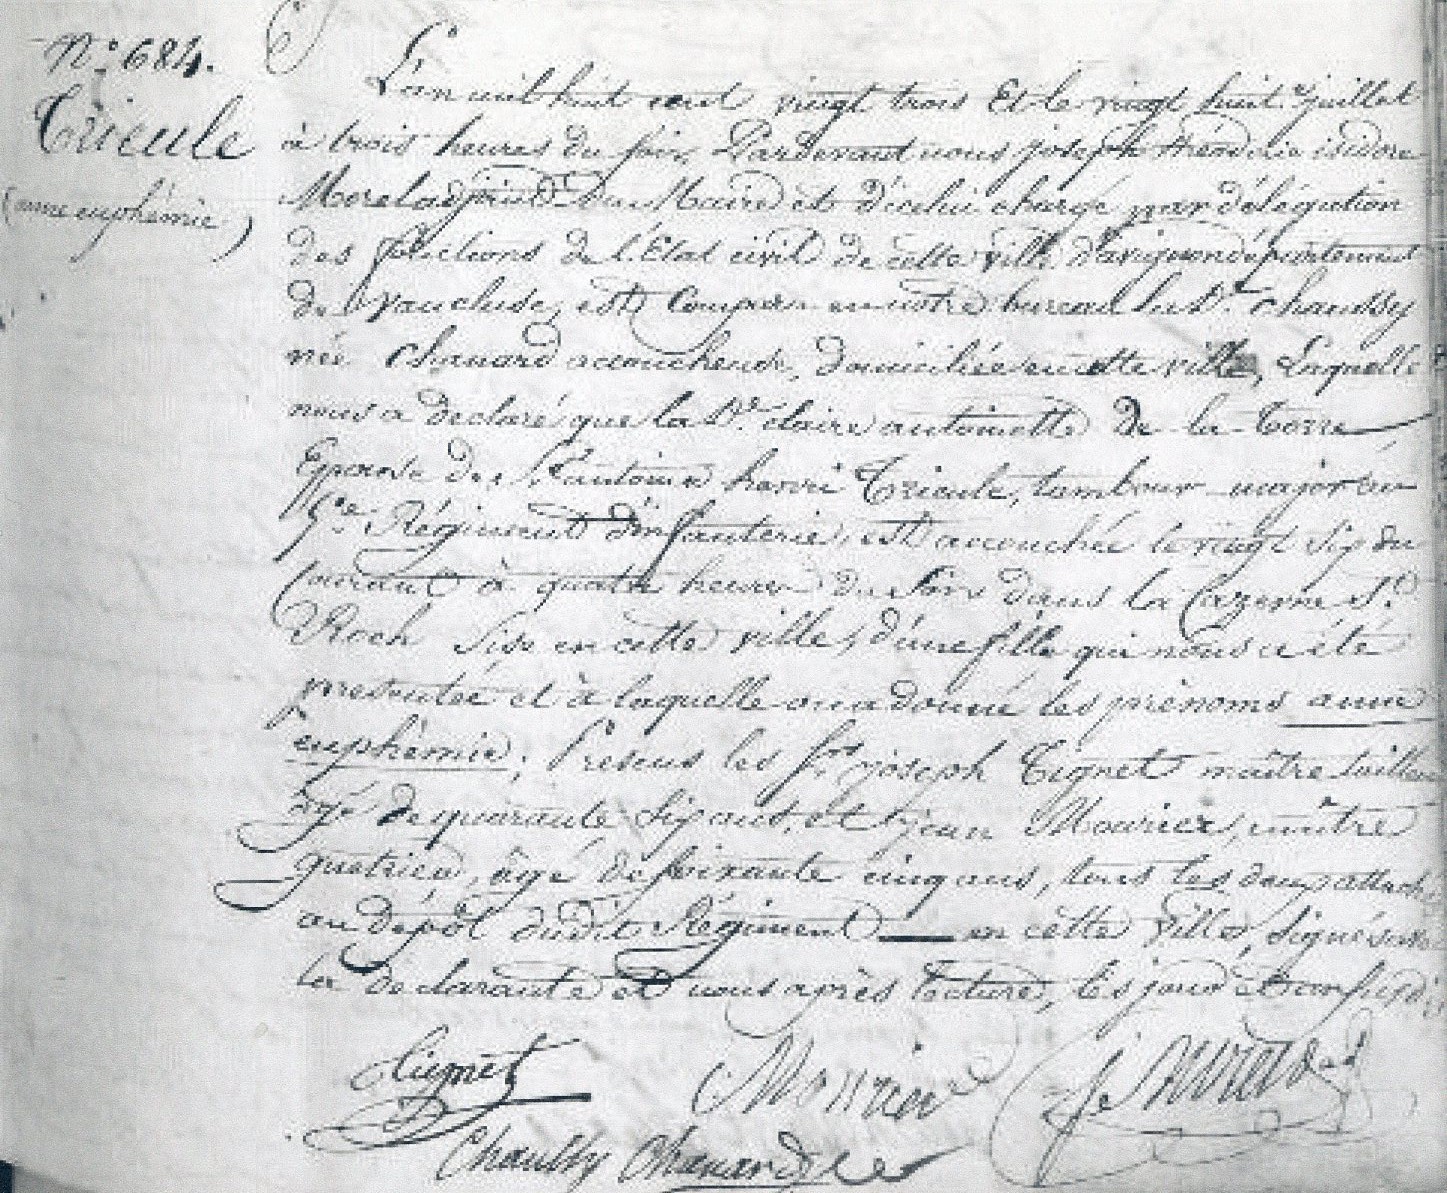 N.º 684.
Tricule
(anne euphémie)
L'an mil huit cent vingt trois Et le vingt huit juillet
à trois heures du soir, Pardevant nous joseph frédéric isidore
Morel adjoint Du Maire et d'icelui chargé par délégation
des fonctions de l'Etat civil de cette ville d'avignon département
de vaucluse, est comparu en notre bureau la D.e chaussy
née chanard accoucheuse, domiciliée en cette ville, Laquelle
nous a declaré que la D.e claire antoinette De la Torre
Epouse de S.r antoine henri Tricule, tambour major au
Régiment d'infanterie, est accouchée le vingt six du
courant à quatre heures du soir dans la Cazerne S.t
Roch sise en cette ville, d'une fille qui nous a été
presentée et à laquelle on a donné les prénoms anne
euphémie; Présens les S.rs joseph Tignet maître tailleur
âgé de quarante six ans, et jean Mourier, maître
guetrier, âgé de soixante cinq ans, tous les deux attachés
au dépôt dudit Régiment en cette ville, signés avec
la declarante et nous après lecture, les jour et an susdits
Tignet Mourier
Chaussy Chanard